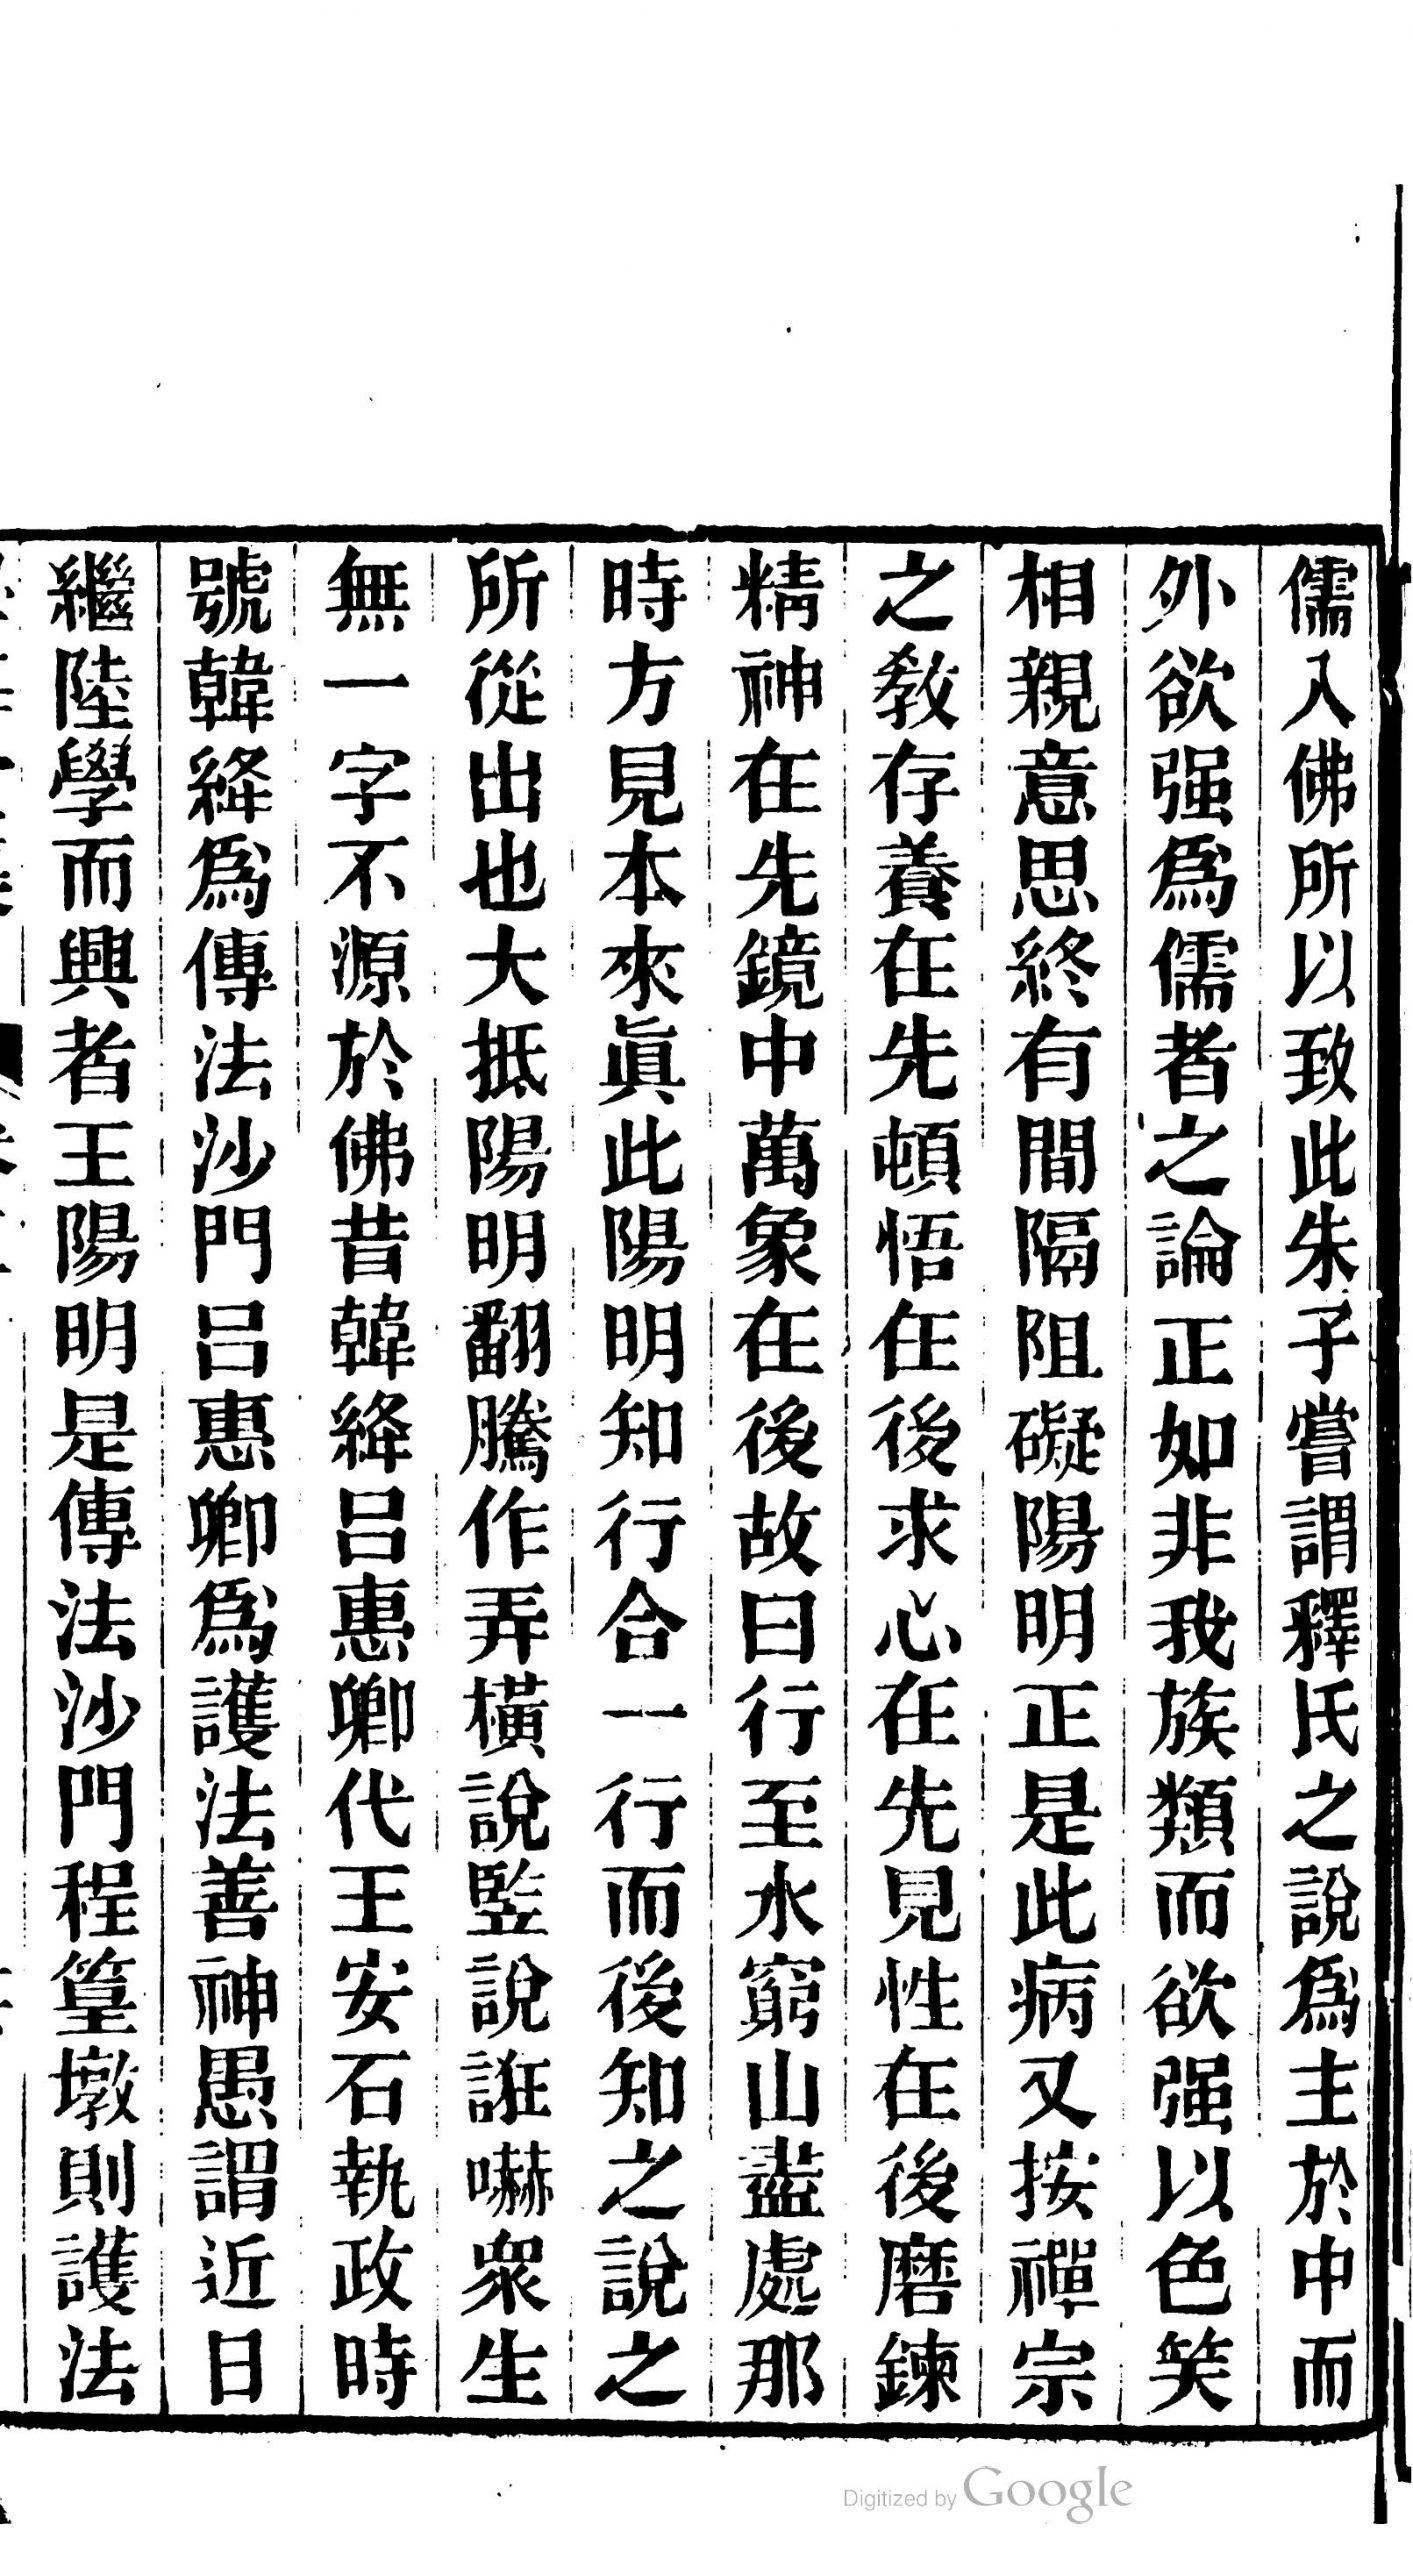 儒入佛所以致此朱子嘗謂釋氏之說爲主於中而
外欲强爲儒者之論正如非我族類而欲强以色笑
相親意思終有間隔阻礙陽明正是此病又按禪宗
之教存養在先頓悟在後求心在先見性在後磨鍊
精神在先鏡中萬象在後故曰行至水窮山盡處那
時方見本來眞此陽明知行合一行而後知之說之
所從出也大抵陽明翻騰作弄橫說竪說誑嚇衆生
無一字不源於佛昔韓絳呂惠卿代王安石執政時
號韓絳爲傳法沙門呂惠卿爲護法善神愚謂近日
繼陸學而興者王陽明是傳法沙門程篁墩則護法
Digitized by Google